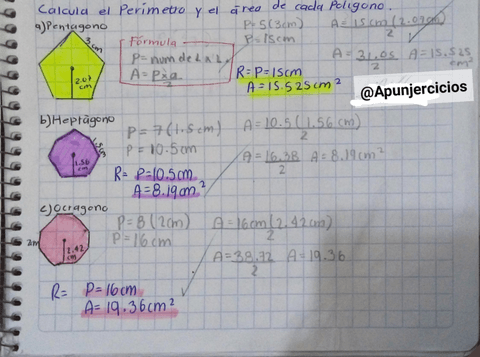 Calcula el Perímetro y el área de cada Polígono.
a) Pentágono
3cm
2.07 cm
Fórmula
P= num de L x L
A= Pxa
2
P= 5(3cm)
P= 15cm
A= 15cm (2.07cm)
2
A= 31.05 A= 15.525
2 cm²
R= P= 15cm
A= 15.525cm²
@Apunjercicios
b) Heptágono
1.5cm
1.56 cm
P= 7(1.5cm)
P= 10.5cm
A= 10.5(1.56cm)
2
A= 16.38 A= 8.19cm²
2
R= P= 10.5cm
A= 8.19cm²
c) Octagono
2m
2.42 cm
P= 8(2cm)
P= 16cm
A= 16cm(2.42cm)
2
A= 38.72 A= 19.36
2
R= P= 16cm
A= 19.36cm²